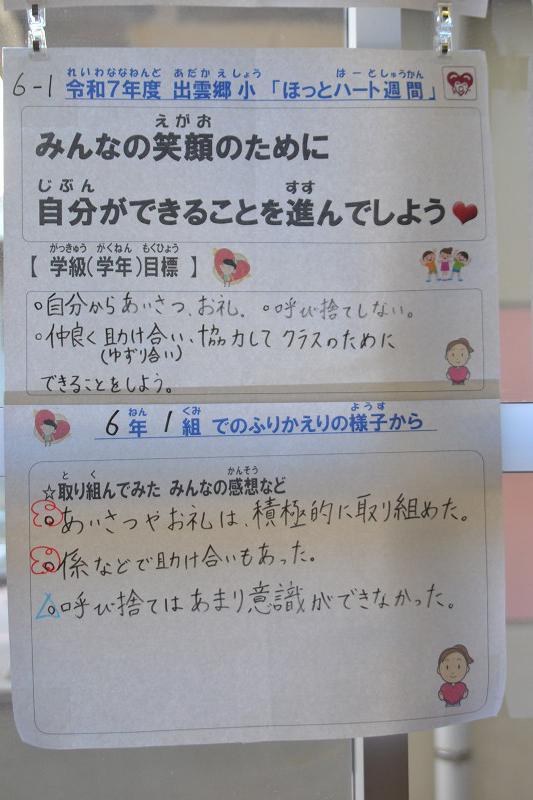 6-1 令和7年度 出雲郷小 「ほっとハート週間」
れいわななねんど あだかえしょう はーとしゅうかん
みんなの笑顔のために
えがお
自分ができることを進んでしよう
じぶん すす
【 学級(学年)目標 】
がっきゅう がくねん もくひょう
○自分からあいさつ、お礼。 ○呼び捨てしない。
○仲良く助け合い、協力して クラスのために
(ゆずり合い)
できることをしよう。
6年 1組 でのふりかえりの様子から
ねん くみ ようす
☆取り組んでみた みんなの感想など
とく かんそう
○あいさつやお礼は、積極的に取り組めた。
○係などで助け合いもあった。
○呼び捨てはあまり意識ができなかった。